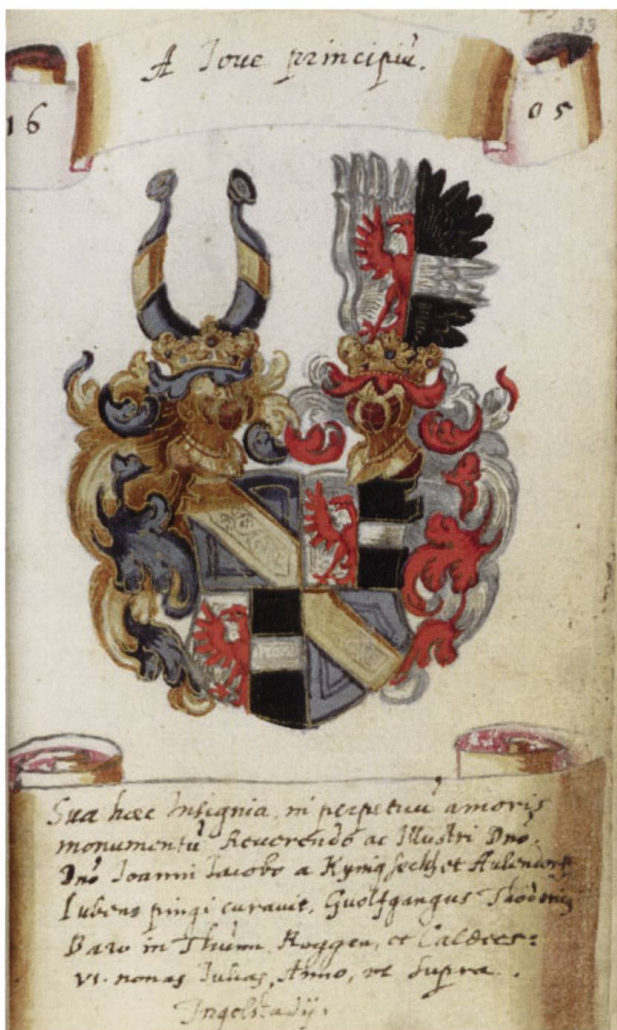 33
A Joue principiū.
16 05
Sua hæc Insignia, in perpetuū amoris
monumentū Reuerendo ac Illustri Dno.
Dnō Joanni Jacobo a Kynigseckh et Aulendorff
Lubens pingi curavit, Guolfgangus
Baro in Thūnn
VI. nonas Julias, Anno, ut supra.
Ingolstadij.